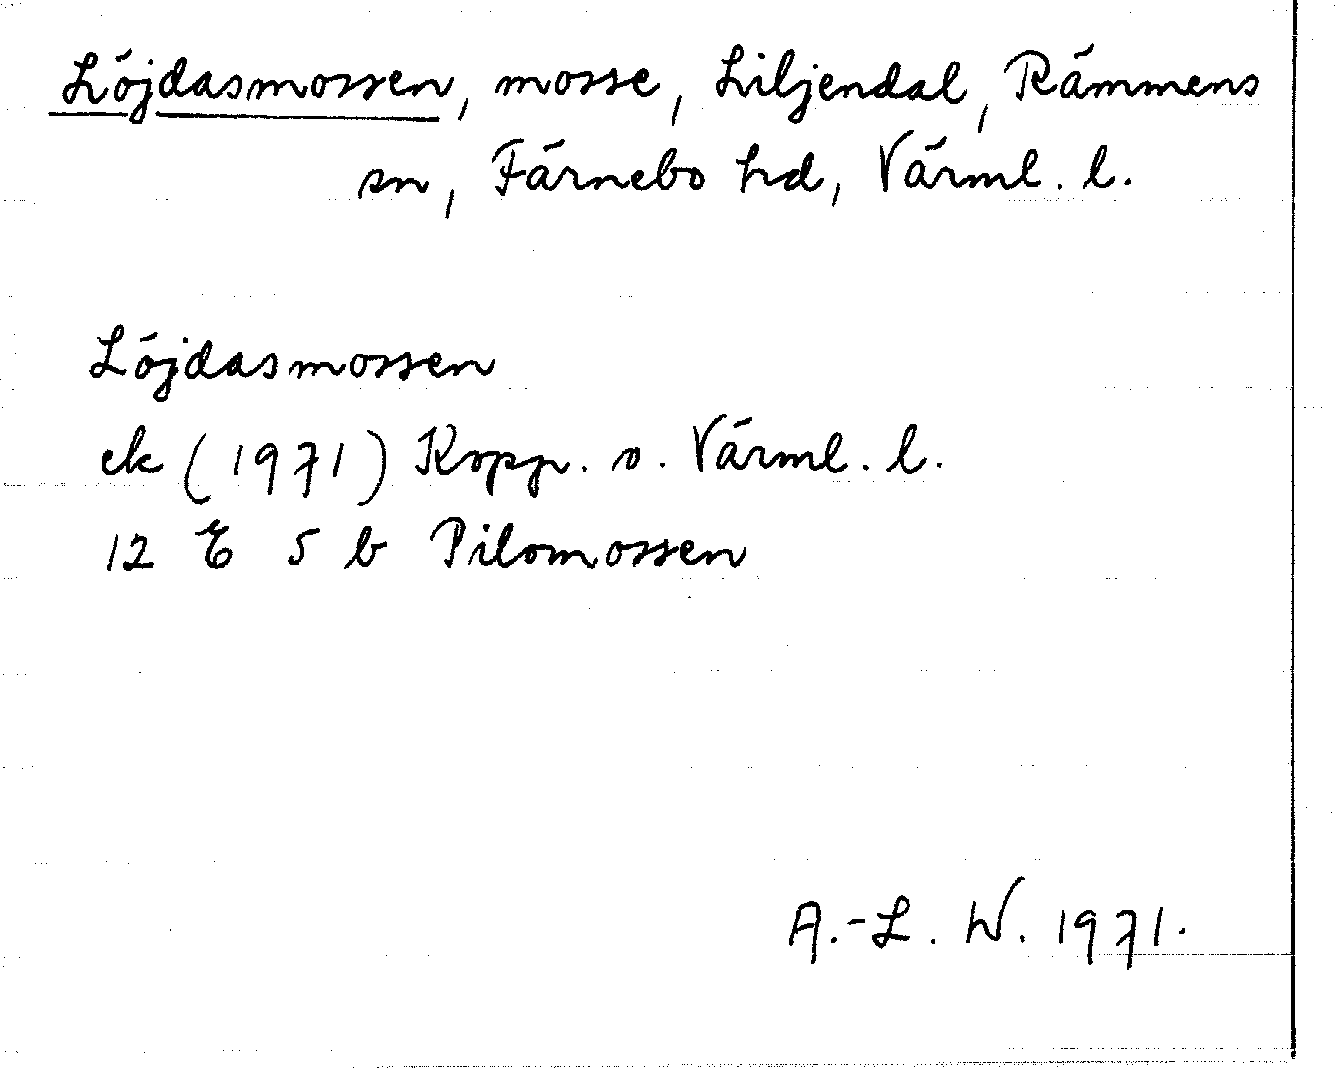 Löjdasmossen, mosse, Liljendal, Rämmens
sn, Färnebo hd, Värml. l.
Löjdasmossen
ek (1971) Kopp. o. Värml. l.
12 E 5 b Pilomossen
A.-L. W. 1971.